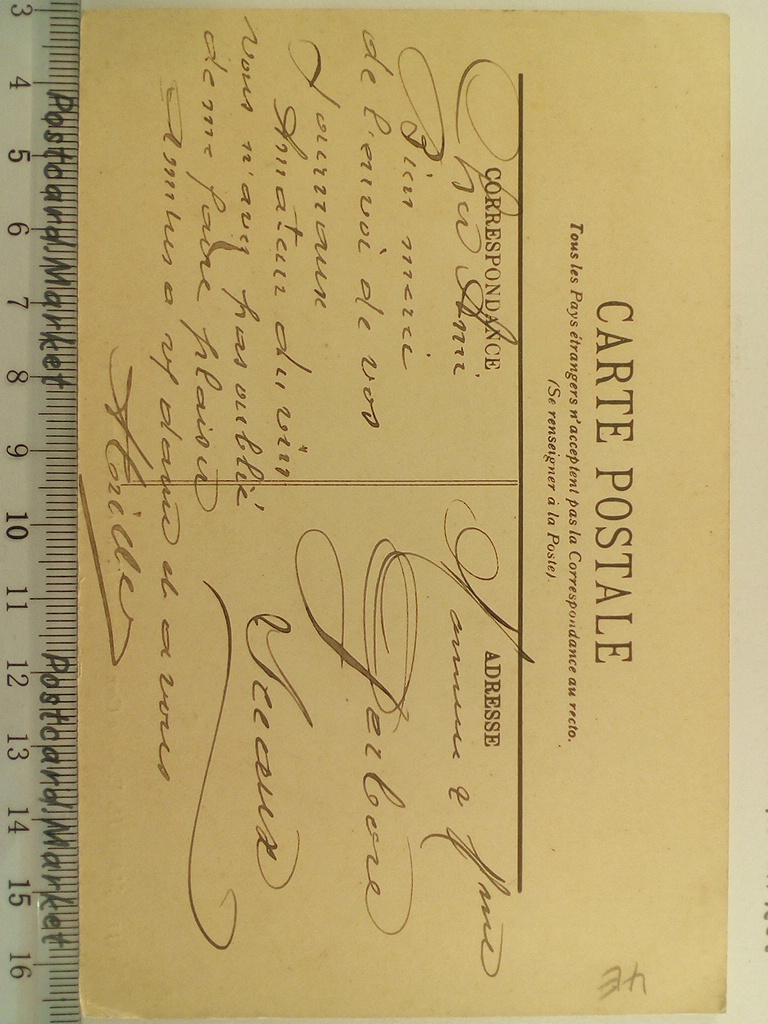 CARTE POSTALE
Tous les Pays étrangers n'acceptent pas la Correspondance au recto.
(Se renseigner à la Poste).
CORRESPONDANCE
Cher Ami
Bien merci
de l'envoi de vos
Journaux
Amateur du vin
vous n'avez pas oublié
de me faire plaisir
Amities a vos dames et a vous
ADRESSE
Mme
Sceaux
3 4 5 6 7 8 9 10 11 12 13 14 15 16
Postcard.Market
Postcard.Market